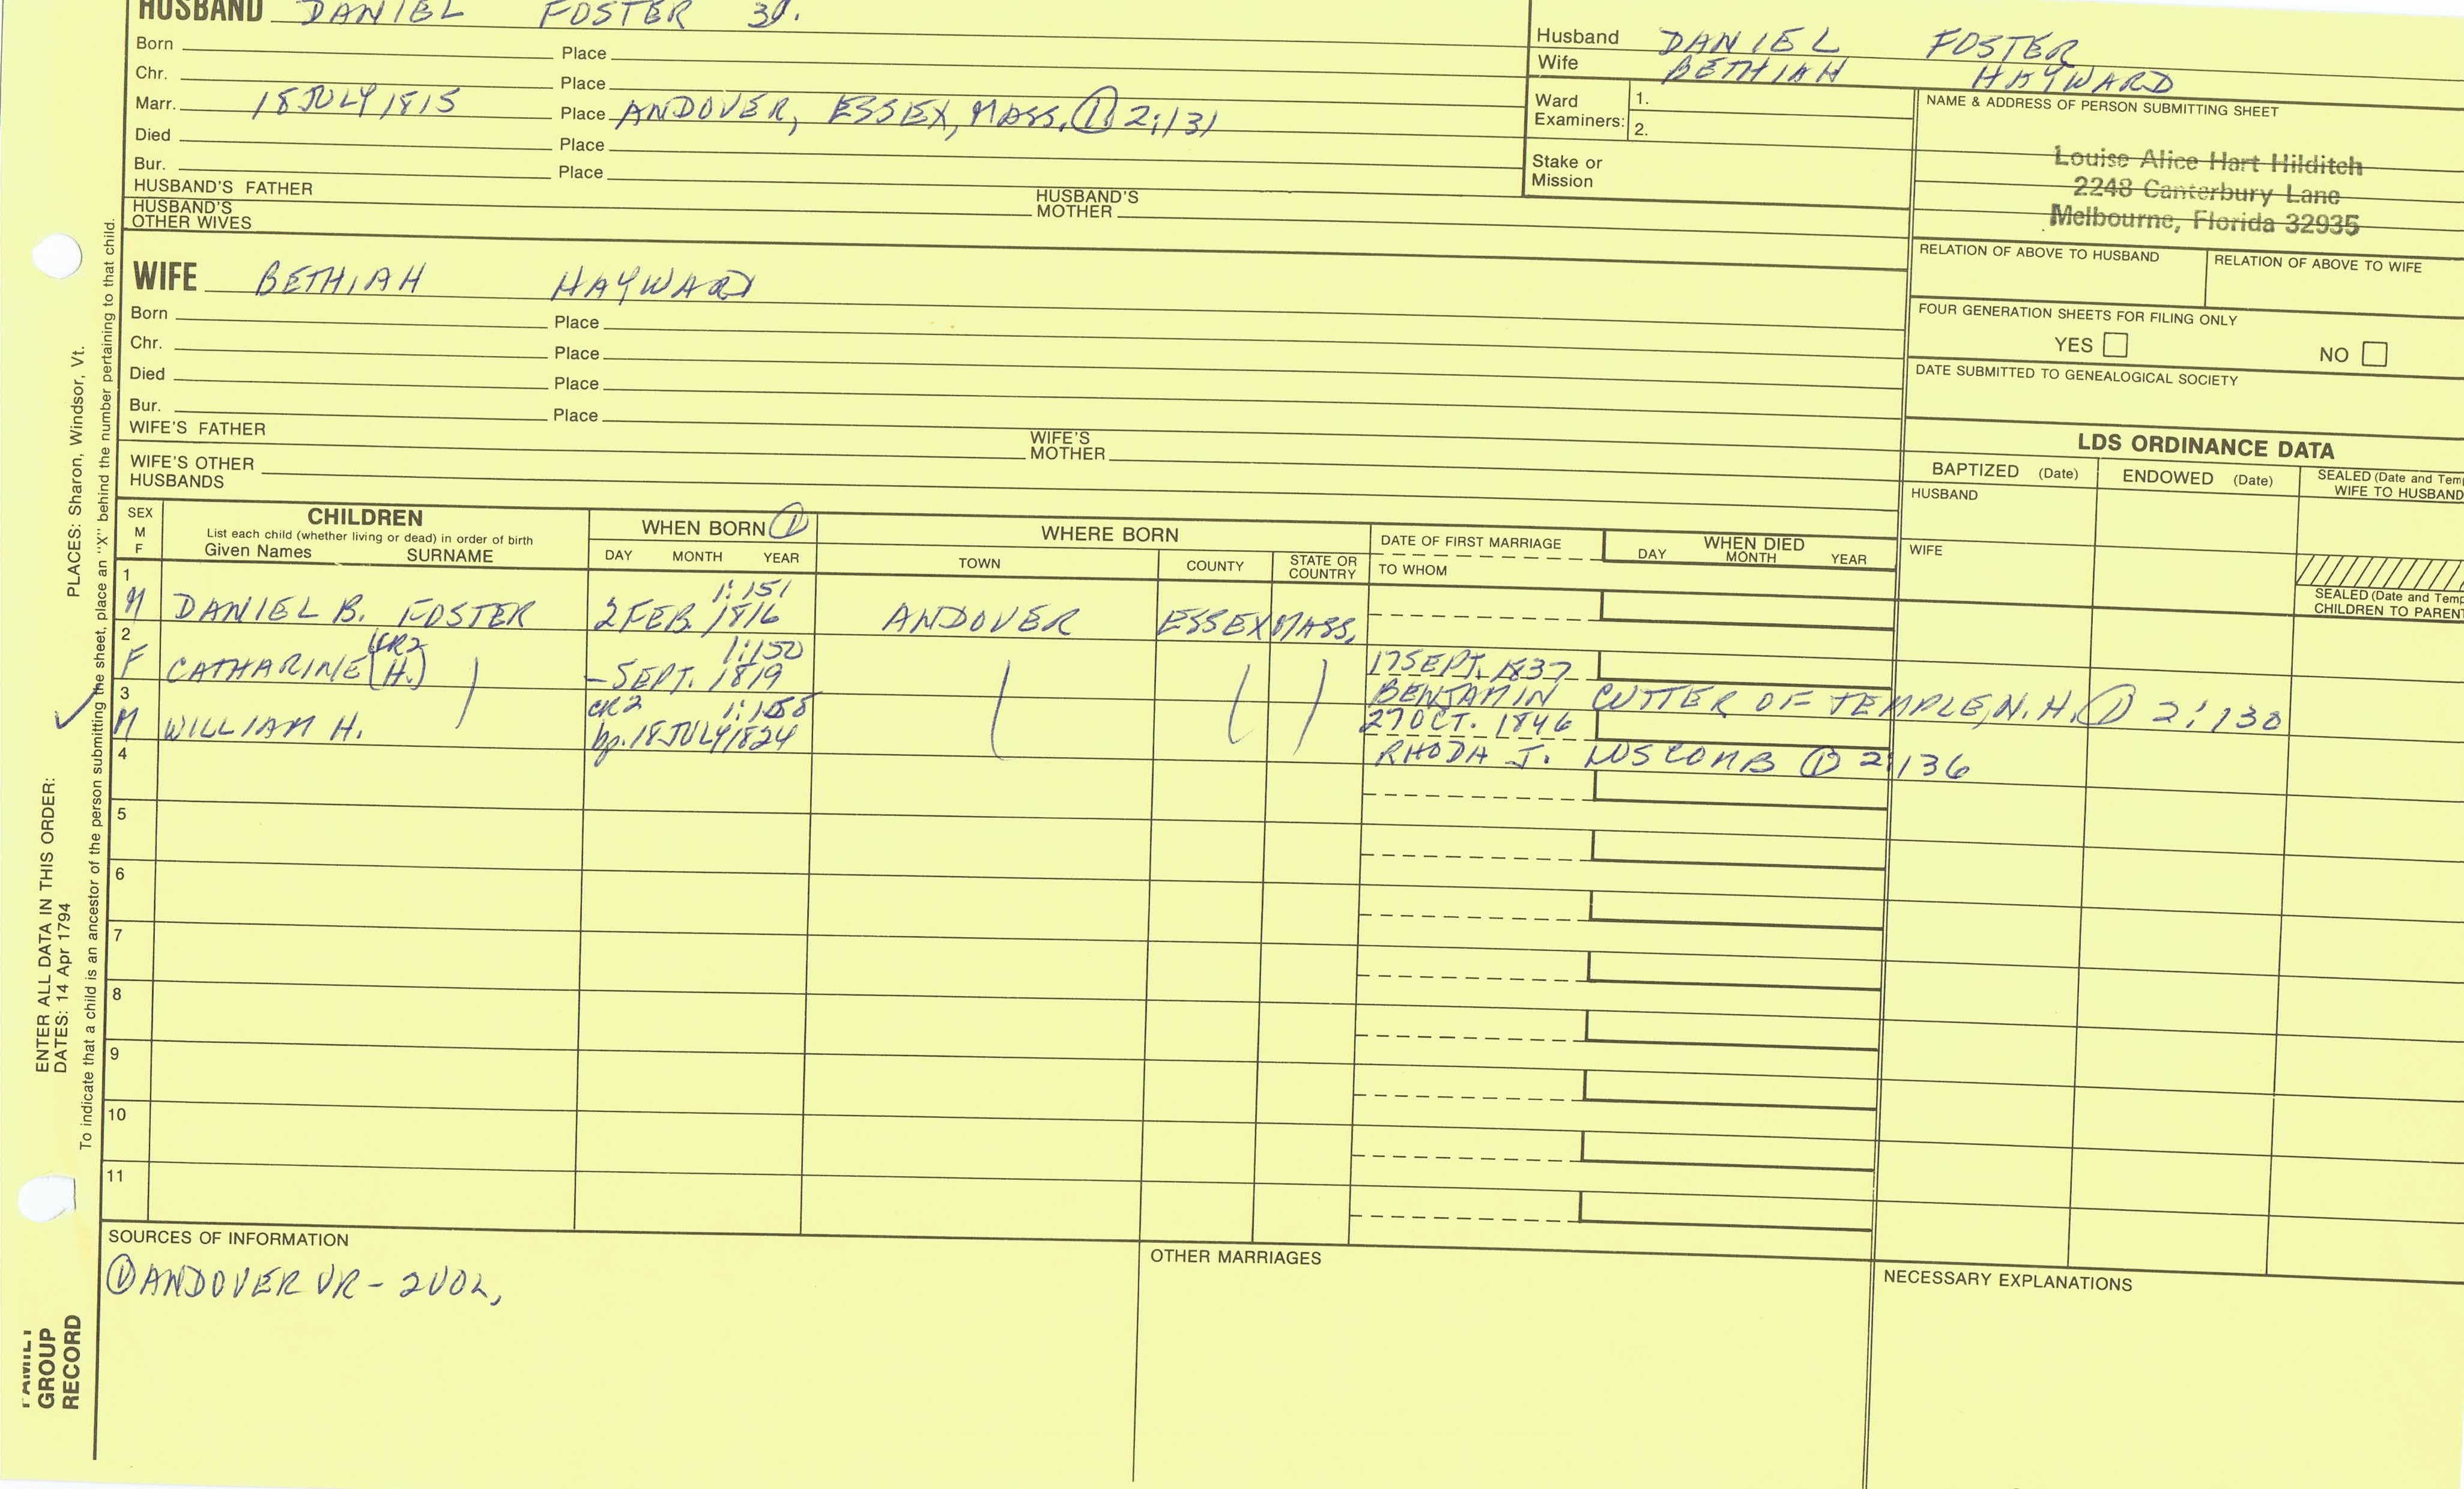 HUSBAND DANIEL FOSTER 3d.
Born Place
Chr. Place
Marr. 18 JULY 1815 Place ANDOVER, ESSEX, MASS. ① 2:131
Died Place
Bur. Place
HUSBAND'S FATHER HUSBAND'S MOTHER
HUSBAND'S OTHER WIVES
Husband DANIEL FOSTER
Wife BETHIAH HAYWARD
Ward Examiners: 1.
2.
Stake or Mission
NAME & ADDRESS OF PERSON SUBMITTING SHEET
Louise Alice Hart Hilditch
2248 Canterbury Lane
Melbourne, Florida 32935
RELATION OF ABOVE TO HUSBAND RELATION OF ABOVE TO WIFE
FOUR GENERATION SHEETS FOR FILING ONLY
YES NO
DATE SUBMITTED TO GENEALOGICAL SOCIETY
WIFE BETHIAH HAYWARD
Born Place
Chr. Place
Died Place
Bur. Place
WIFE'S FATHER WIFE'S MOTHER
WIFE'S OTHER HUSBANDS
LDS ORDINANCE DATA
BAPTIZED (Date) ENDOWED (Date) SEALED (Date and Tem
WIFE TO HUSBAND
HUSBAND
WIFE
SEALED (Date and Temp
CHILDREN TO PAREN
SEX M F
CHILDREN
List each child (whether living or dead) in order of birth
Given Names SURNAME
WHEN BORN ①
DAY MONTH YEAR
WHERE BORN
TOWN COUNTY STATE OR COUNTRY
DATE OF FIRST MARRIAGE
TO WHOM
WHEN DIED
DAY MONTH YEAR
1
1:151
M DANIEL B. FOSTER 2 FEB. 1816 ANDOVER ESSEX MASS.
2
CR2 1:150
F CATHARINE (H.) - SEPT. 1819 17 SEPT. 1837
BENJAMIN CUTTER OF TEMPLE, N.H. ① 2:130
3
CR2 1:158
M WILLIAM H. bp. 18 JULY 1824 27 OCT. 1846
RHODA J. LUSCOMB ① 2:136
4
5
6
7
8
9
10
11
SOURCES OF INFORMATION
① ANDOVER VR - 2 VOL.
OTHER MARRIAGES
NECESSARY EXPLANATIONS
PLACES: Sharon, Windsor, Vt.
ENTER ALL DATA IN THIS ORDER:
DATES: 14 Apr 1794
To indicate that a child is an ancestor of the person submitting the sheet, place an "X" behind the number pertaining to that child.
FAMILY
GROUP
RECORD